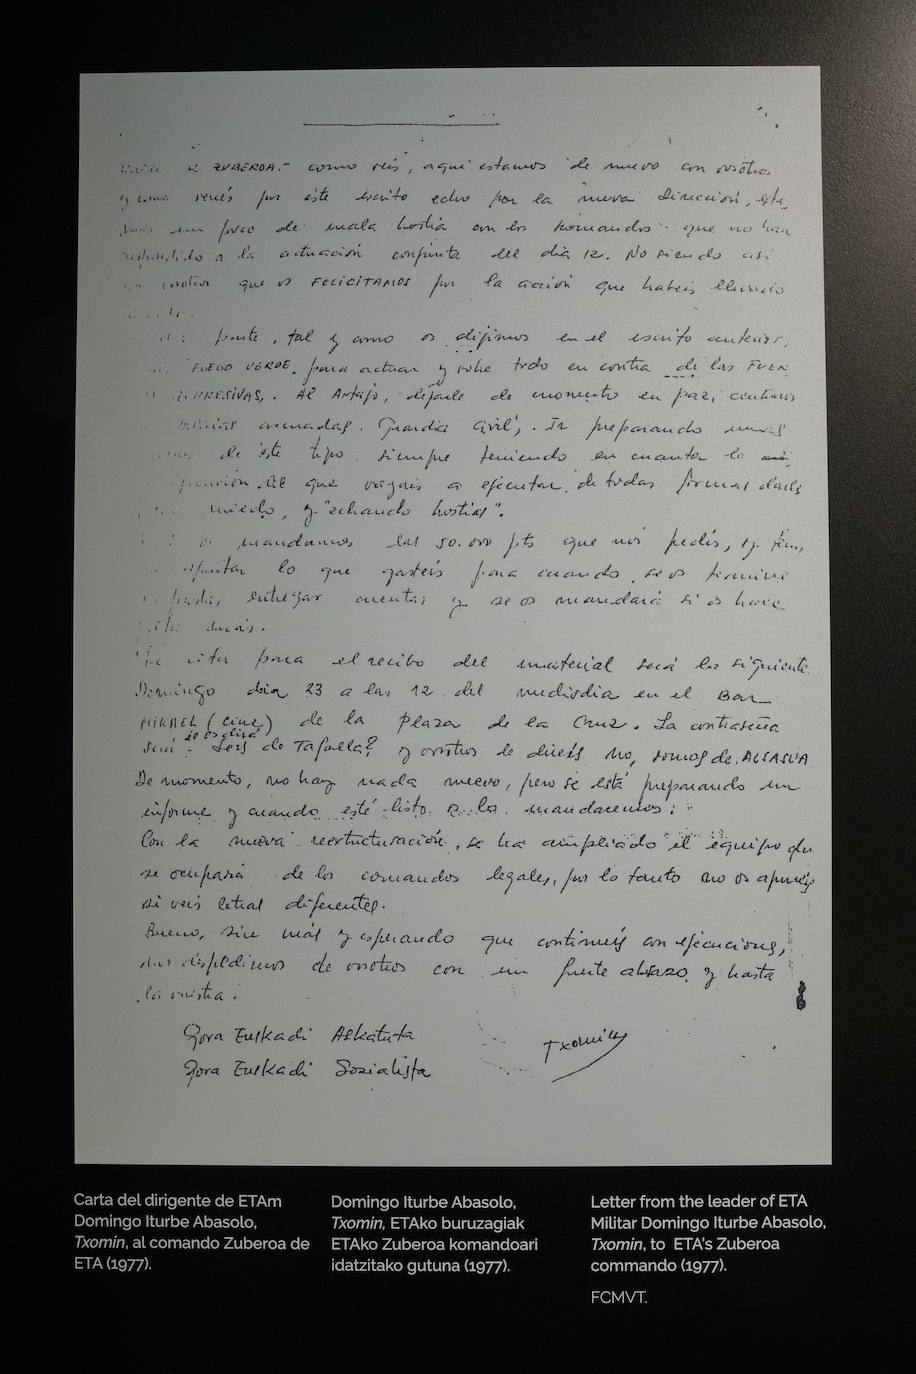 ZUBEROA.- como veis, aquí estamos de nuevo con vosotros
y como vereis por éste escrito echo por la nueva Dirección, esta
un poco de mala hostia con los Komandos que no han
respondido a la actuación conjunta del dia 12. No siendo asi
que os FELICITAMOS por la acción que habeis llevado
parte, tal y como os dijimos en el escrito anterior,
FUEGO VERDE, para actuar y sobre todo en contra de las FUER
REPRESIVAS,. Al Artajo, dejarle de momento en paz,
armadas. Guardia Civil,. Ir preparando unas
de éste tipo, siempre teniendo en cuanta la
que vayais a ejecutar, de todas formas
miedo, y "echando hostias".
mandamos las 50.000 pts que nos pedís,
lo que gasteis para cuando se os termine
entregar cuentas y se os mandará si os hace
más.
La cita para el recibo del material será la siguiente
Domingo dia 23 a las 12 del mediodia en el Bar
MIKAEL (cine) de la Plaza de la Cruz. La contraseña
se os dirá
será: Sois de Tafalla? y vosotros le direis no, somos de ALSASUA
De momento, no hay nada nuevo, pero se está preparando un
informe y cuando esté listo os lo mandaremos.
Con la nueva reestructuración, se ha ampliado el equipo que
se ocupará de los comandos legales, por lo tanto no os apureis
si veis letras diferentes.
Bueno, sin más y esperando que continueis con ejecuciones,
nos despedimos de vosotros con un fuerte abrazo, y hasta
la vuestra.
Gora Euskadi Askatuta
Gora Euskadi Sozialista
Txomin
Carta del dirigente de ETAm
Domingo Iturbe Abasolo,
Txomin, al comando Zuberoa de
ETA (1977).
Domingo Iturbe Abasolo,
Txomin, ETAko buruzagiak
ETAko Zuberoa komandoari
idatzitako gutuna (1977).
Letter from the leader of ETA
Militar Domingo Iturbe Abasolo,
Txomin, to ETA's Zuberoa
commando (1977).
FCMVT.